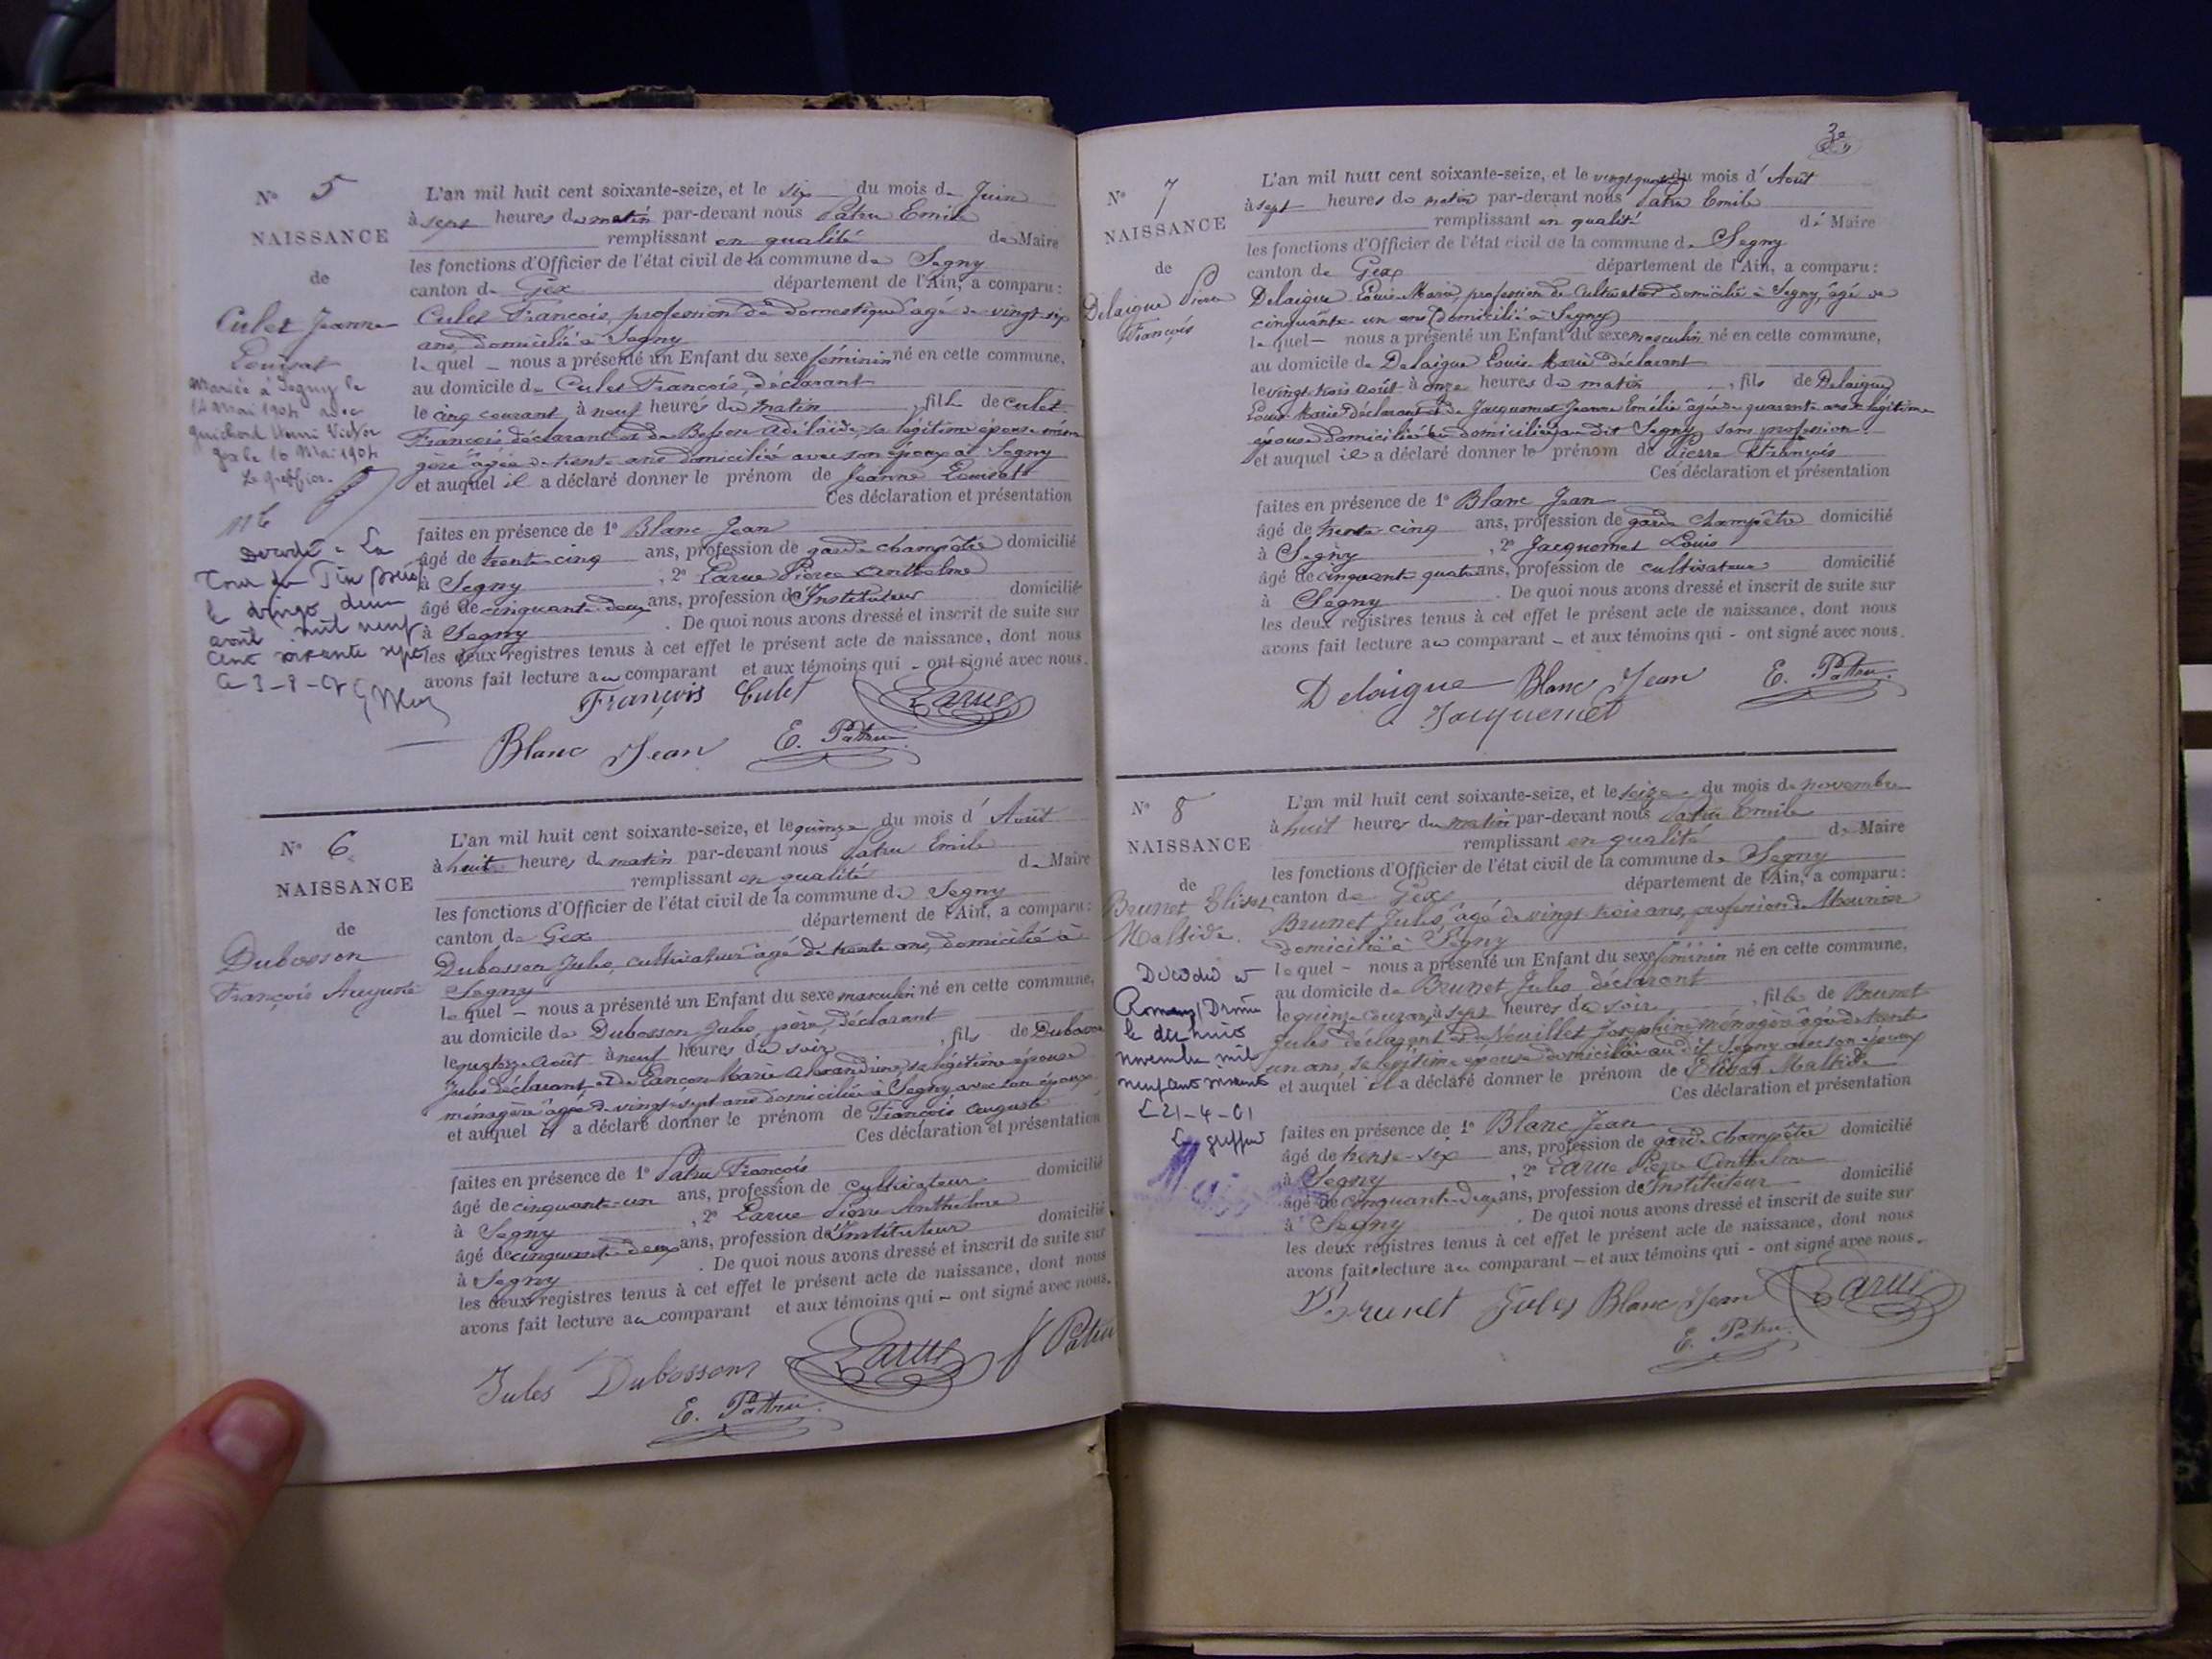 N° 5
NAISSANCE
de
Culet Jeanne
Louisat
Mariée à Segny le
14 Mai 1904 avec
Guichard Henri Victor
Gex le 16 Mai 1904
Le greffier.
Décédée à La
Tour du Pin
le vingt deux
avril mil neuf
cent soixante sept
L'an mil huit cent soixante-seize, et le six du mois de Juin
à sept heures du matin par-devant nous Patru Emile
remplissant en qualité de Maire
les fonctions d'Officier de l'état civil de la commune de Segny
canton de Gex département de l'Ain, a comparu :
Culet François, profession de domestique âgé de vingt-six
ans, domicilié à Segny
lequel — nous a présenté un Enfant du sexe féminin né en cette commune,
au domicile de Culet François, déclarant
le cinq courant à neuf heures du matin , fille de Culet
François déclarant et de Besson Adélaïde, sa légitime épouse
âgée de trente ans domiciliée avec son époux à Segny
et auquel il a déclaré donner le prénom de Jeanne Louisat
Ces déclaration et présentation
faites en présence de 1° Blanc Jean
âgé de trente cinq ans, profession de garde champêtre domicilié
à Segny , 2° Larue Pierre Anthelme
âgé de cinquante-deux ans, profession d'Instituteur domicilié
à Segny . De quoi nous avons dressé et inscrit de suite sur
les deux registres tenus à cet effet le présent acte de naissance, dont nous
avons fait lecture au comparant et aux témoins qui – ont signé avec nous.
François Culet Larue
Blanc Jean E. Patru
N° 6
NAISSANCE
de
Dubosson
François Auguste
L'an mil huit cent soixante-seize, et le quinze du mois d'Août
à huit heures du matin par-devant nous Patru Emile
remplissant en qualité de Maire
les fonctions d'Officier de l'état civil de la commune de Segny
canton de Gex département de l'Ain, a comparu :
Dubosson Jules, cultivateur âgé de trente ans, domicilié à
Segny
lequel — nous a présenté un Enfant du sexe masculin né en cette commune,
au domicile de Dubosson Jules, père, déclarant
le quatorze Août à neuf heures du soir , fils de Dubosson
Jules déclarant, et de Lançon Marie Alexandrine, sa légitime épouse
ménagère âgée de vingt-sept ans domiciliée à Segny avec son époux
et auquel il a déclaré donner le prénom de François Auguste
Ces déclaration et présentation
faites en présence de 1° Patru François
âgé de cinquante-un ans, profession de cultivateur domicilié
à Segny , 2° Larue Pierre Anthelme
âgé de cinquante-deux ans, profession d'Instituteur domicilié
à Segny . De quoi nous avons dressé et inscrit de suite sur
les deux registres tenus à cet effet le présent acte de naissance, dont nous
avons fait lecture au comparant et aux témoins qui – ont signé avec nous.
Jules Dubosson Larue f Patru
E. Patru
N° 7
NAISSANCE
de
Delaigue Pierre
François
L'an mil huit cent soixante-seize, et le vingt quatre du mois d'Août
à sept heures du matin par-devant nous Patru Emile
remplissant en qualité de Maire
les fonctions d'Officier de l'état civil de la commune de Segny
canton de Gex département de l'Ain, a comparu :
Delaigue Louis-Marie, profession de Cultivateur domicilié à Segny, âgé de
cinquante-un ans (domicilié à Segny)
lequel — nous a présenté un Enfant du sexe masculin né en cette commune,
au domicile de Delaigue Louis-Marie déclarant
le vingt-trois août à onze heures du matin , fils de Delaigue
Louis-Marie déclarant et de Jacquemet Jeanne Emélie âgée de quarante ans sa légitime
épouse domiciliée au dit Segny, sans profession
et auquel il a déclaré donner le prénom de Pierre François
Ces déclaration et présentation
faites en présence de 1° Blanc Jean
âgé de trente cinq ans, profession de garde champêtre domicilié
à Segny , 2° Jacquemet Louis
âgé de cinquante quatre ans, profession de cultivateur domicilié
à Segny . De quoi nous avons dressé et inscrit de suite sur
les deux registres tenus à cet effet le présent acte de naissance, dont nous
avons fait lecture au comparant – et aux témoins qui - ont signé avec nous.
Delaigue Blanc Jean E. Patru
Jacquemet
N° 8
NAISSANCE
de
Brunet Elisat
Maltide.
Décédée à
Romans/Drôme
le dix huit
novembre mil
neuf cent soixante
L 21-4-61
Le greffier
L'an mil huit cent soixante-seize, et le seize du mois de novembre
à huit heures du matin par-devant nous Patru Emile
remplissant en qualité de Maire
les fonctions d'Officier de l'état civil de la commune de Segny
canton de Gex département de l'Ain, a comparu :
Brunet Jules, âgé de vingt-trois ans, profession de Meunier
domicilié à Segny
lequel – nous a présenté un Enfant du sexe féminin né en cette commune,
au domicile de Brunet Jules déclarant
le quinze courant à sept heures du soir , fille de Brunet
Jules déclarant et de Neuillet Joséphine ménagère âgée de trente
un ans, sa légitime épouse domiciliée au dit Segny avec son époux
et auquel il a déclaré donner le prénom de Elisat Maltide
Ces déclaration et présentation
faites en présence de 1° Blanc Jean
âgé de trente-six ans, profession de garde champêtre domicilié
à Segny , 2° Larue Pierre Anthelme
âgé de cinquante-deux ans, profession d'Instituteur domicilié
à Segny . De quoi nous avons dressé et inscrit de suite sur
les deux registres tenus à cet effet le présent acte de naissance, dont nous
avons fait lecture au comparant – et aux témoins qui - ont signé avec nous.
Brunet Jules Blanc Jean Larue
E. Patru